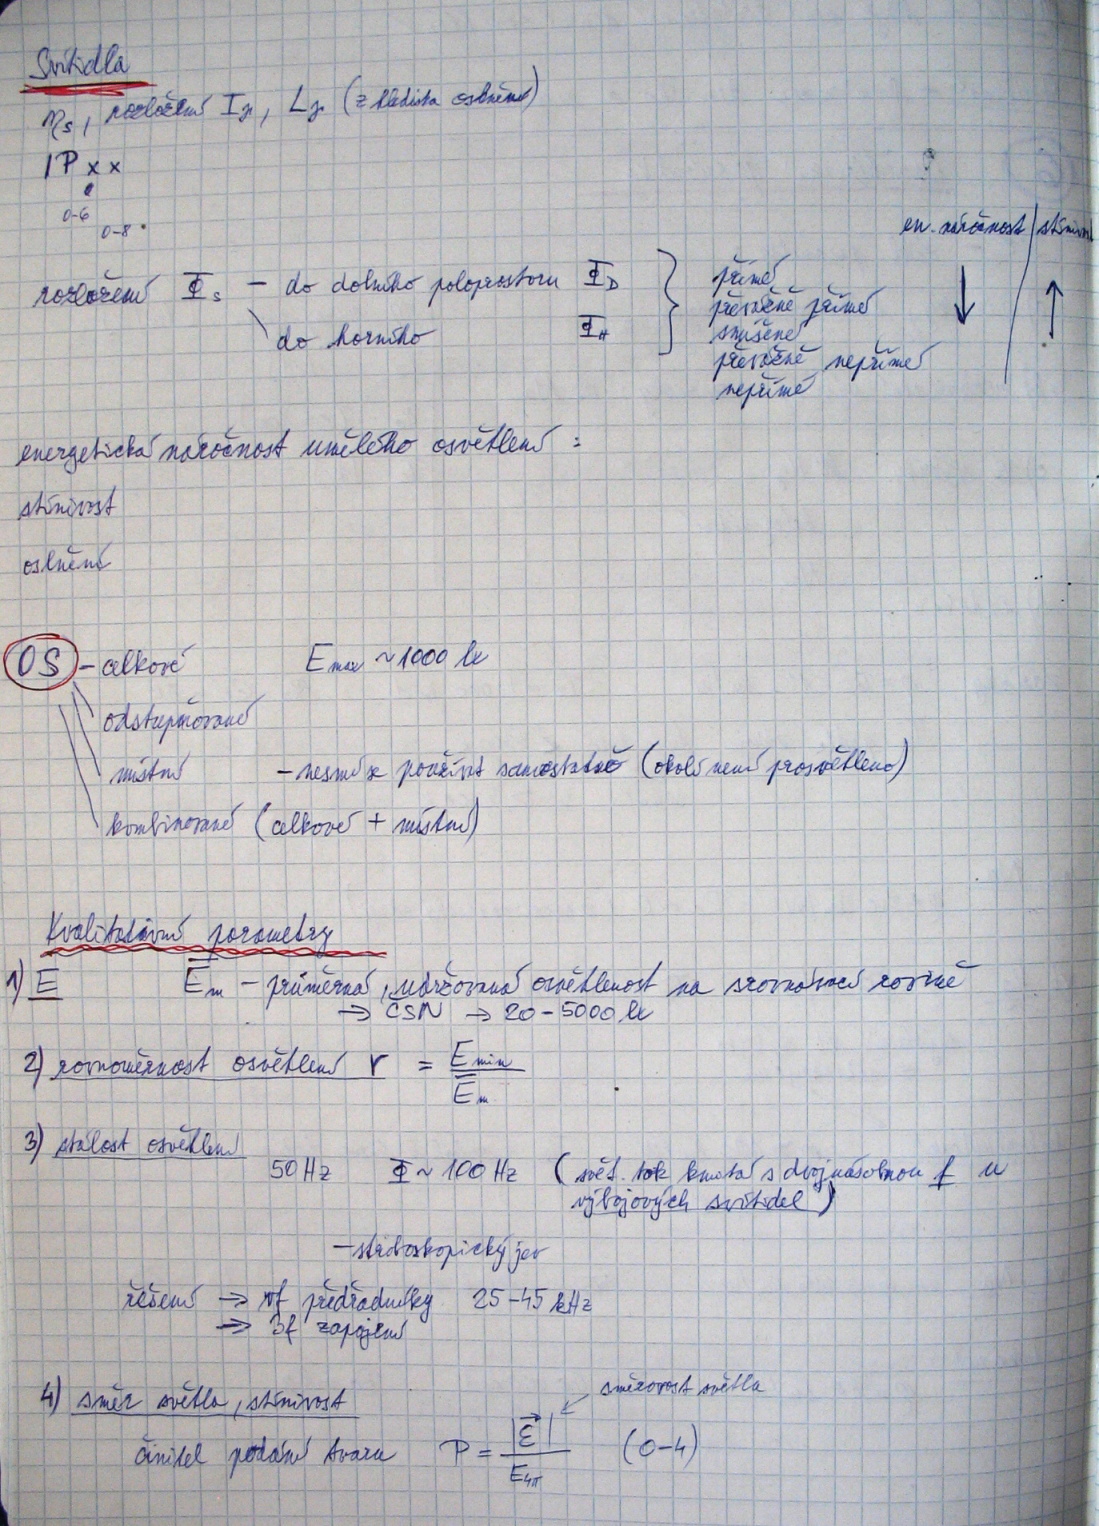 Svítidla
ηs, rozložení Iγ, Lγ (z hlediska oslnění)
IP x x
0-6
0-8
en. náročnost | stínivost
rozložení Φs – do dolního poloprostoru ΦD
do horního ΦH
přímé
převážně přímé
smíšené
převážně nepřímé
nepřímé
↓ ↑
energetická náročnost umělého osvětlení :
stínivost
oslnění
OS – celkové Emax ~ 1000 lx
odstupňované
místní – nesmí se použít samostatně (okolí není prosvětleno)
kombinované (celkové + místní)
Kvalitativní parametry
1) E Ēm – průměrná, udržovaná osvětlenost na srovnávací rovině
→ ČSN → 20-5000 lx
2) rovnoměrnost osvětlení r = Emin / Ēm
3) stálost osvětlení
50 Hz Φ ~ 100 Hz (svět. tok kmitá s dvojnásobnou f u
výbojových svítidel)
– stroboskopický jev
řešení → vf předřadníky 25-45 kHz
→ 3f zapojení
4) směr světla, stínivost
směrovost světla
činitel podání tvaru P = |ε⃗| / E4π (0-4)